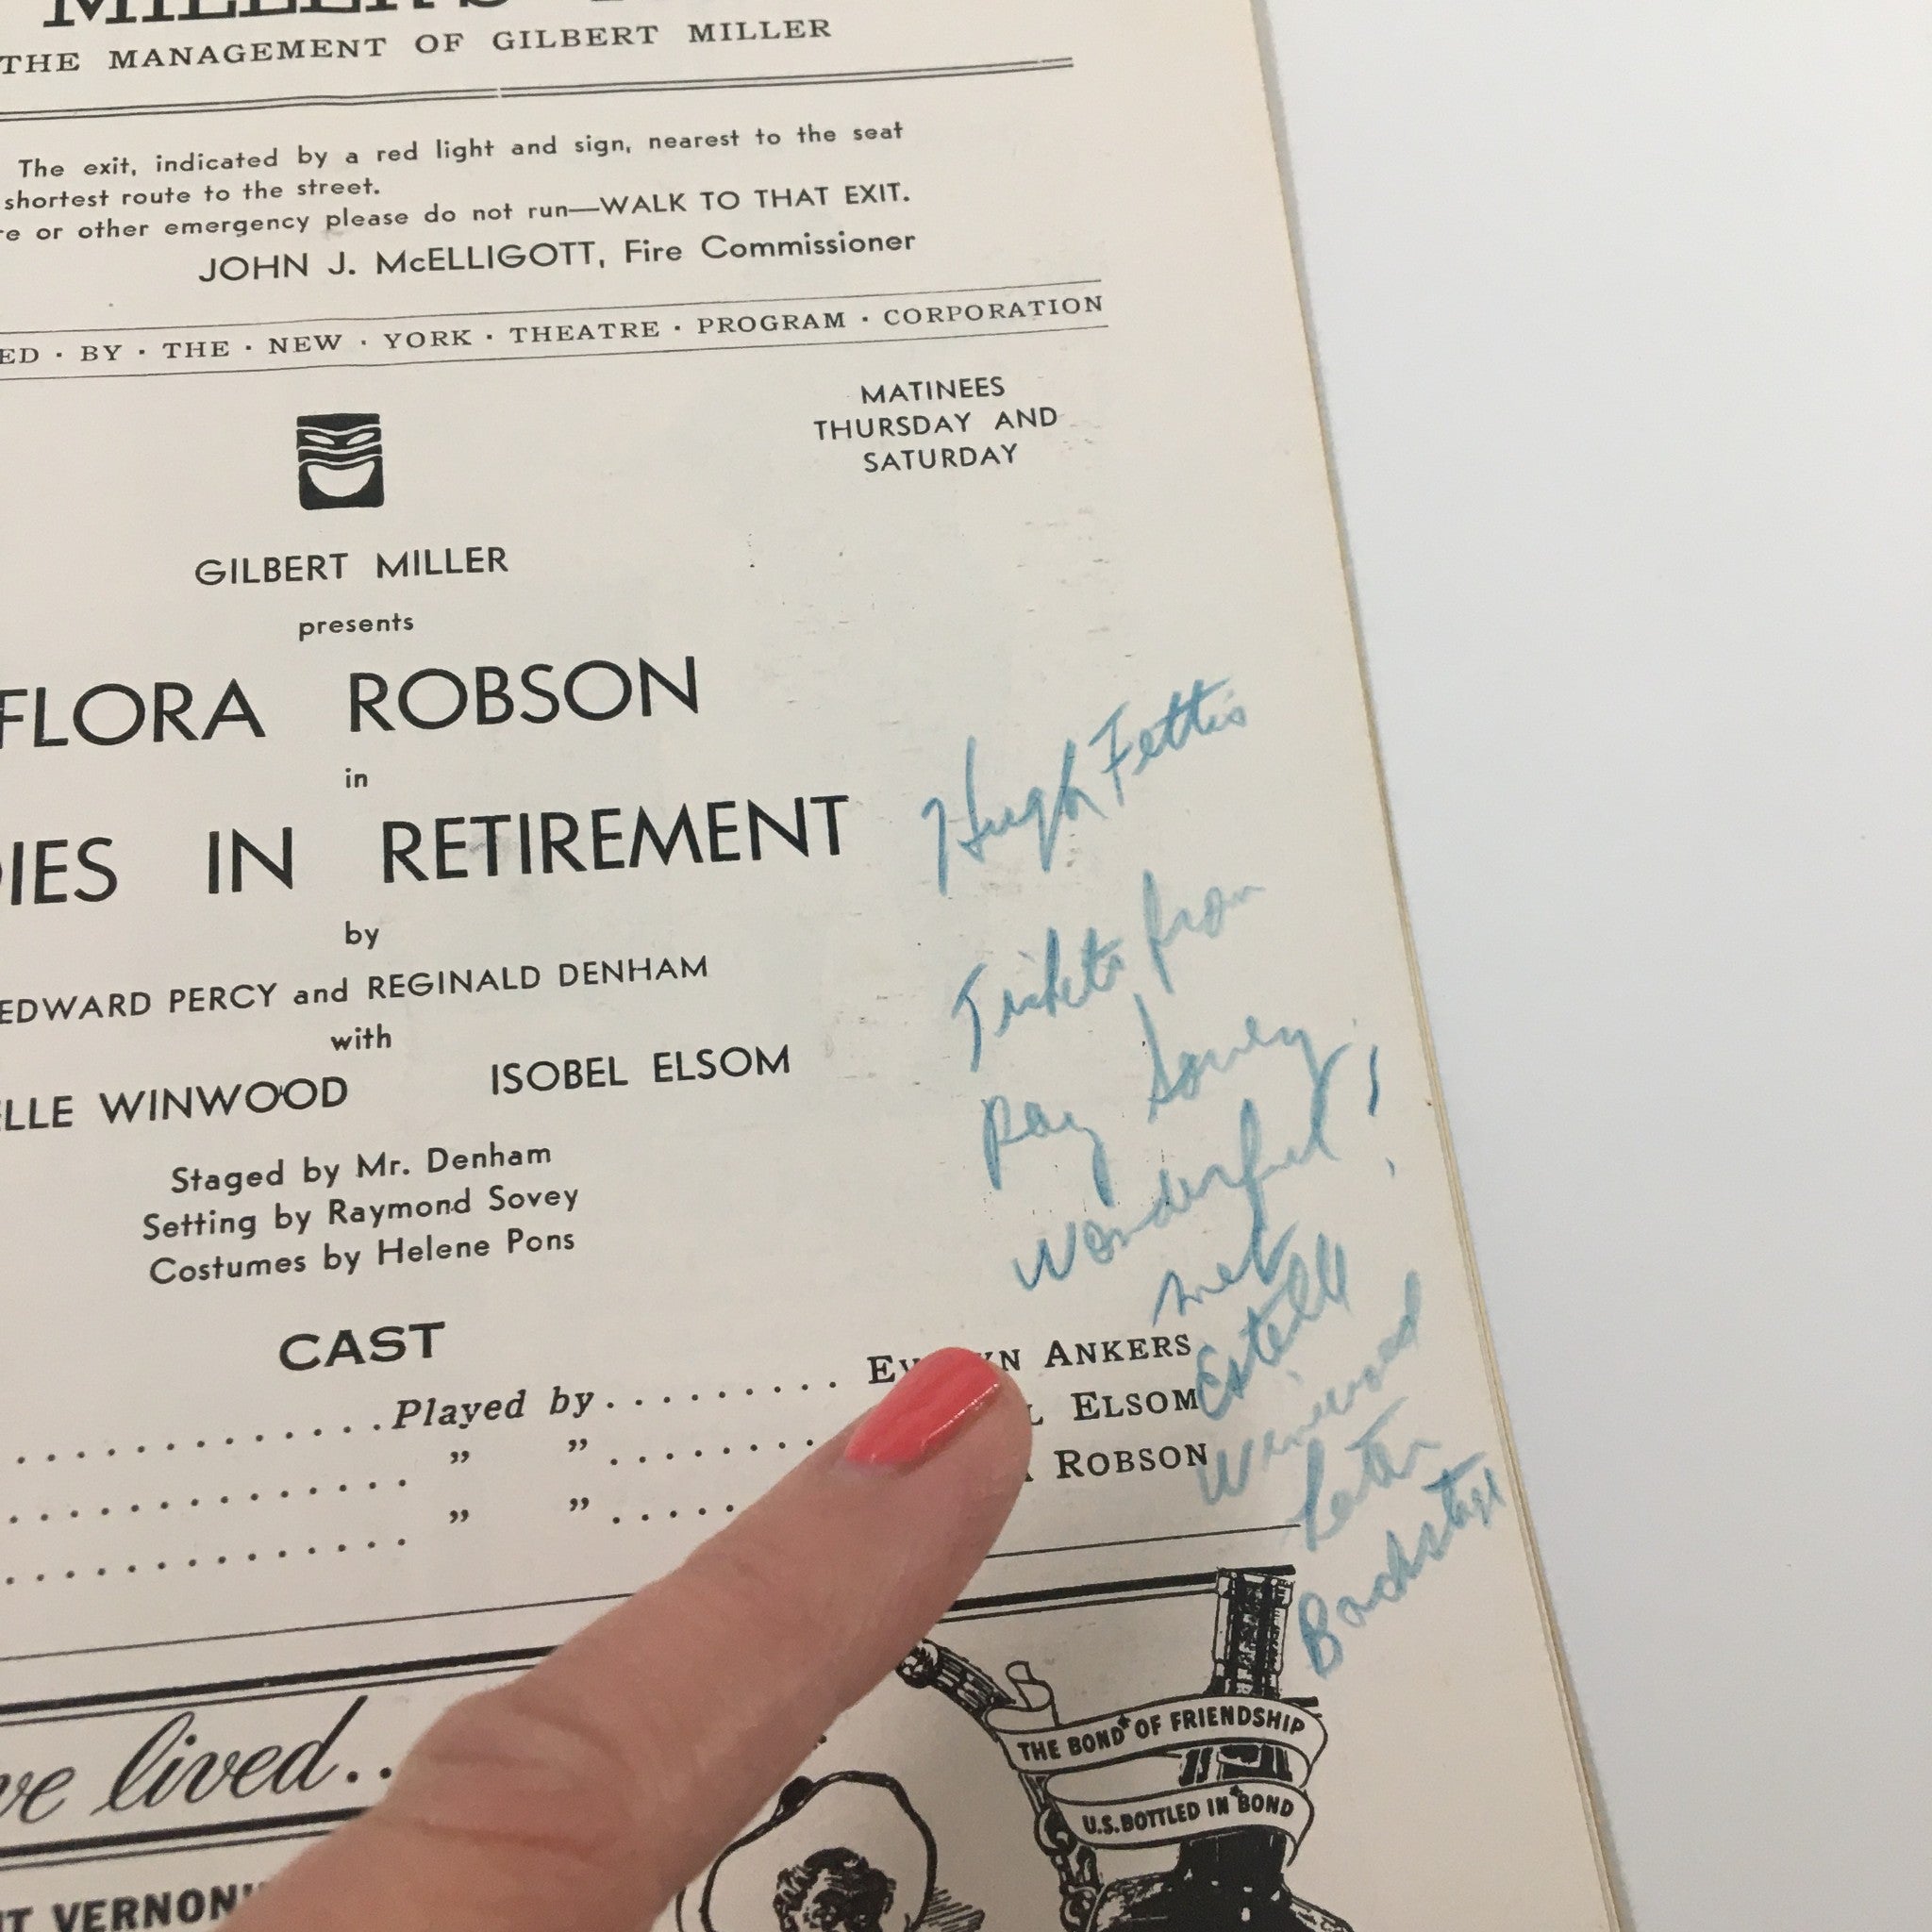 THE MANAGEMENT OF GILBERT MILLER
The exit, indicated by a red light and sign, nearest to the seat
shortest route to the street.
or other emergency please do not run—WALK TO THAT EXIT.
JOHN J. McELLIGOTT, Fire Commissioner
BY · THE · NEW · YORK · THEATRE · PROGRAM · CORPORATION
MATINEES
THURSDAY AND
SATURDAY
GILBERT MILLER
presents
FLORA ROBSON
in
IN RETIREMENT
by
EDWARD PERCY and REGINALD DENHAM
with
WINWOOD ISOBEL ELSOM
Staged by Mr. Denham
Setting by Raymond Sovey
Costumes by Helene Pons
CAST
Played by ANKERS
” ” ELSOM
” ” ROBSON
Hugh Fettis
Tickets from
Ray Sovey
Wonderful!
met
Estelle
Winwood
Later
Backstage
lived..
THE BOND OF FRIENDSHIP
U.S. BOTTLED IN BOND